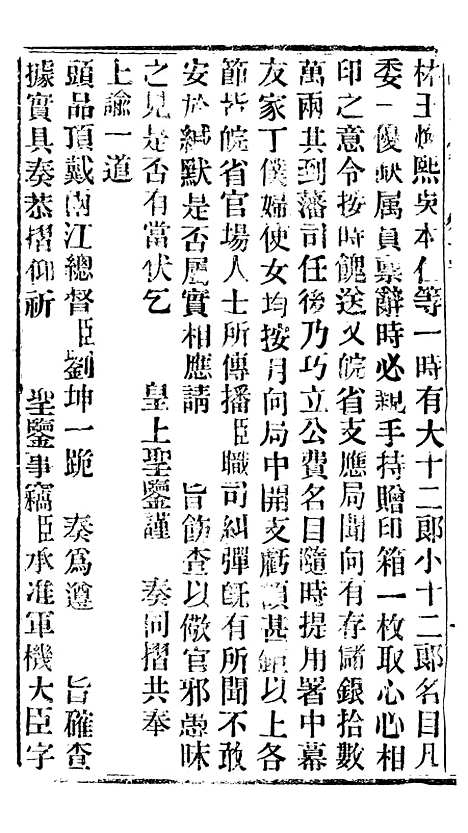 林玉幟熙吳本仁等一時有大十二郎小十二郎名目凡
委一優缺属員稟辭時必親手持贈印箱一枚取心心相
印之意令按時餽送又皖省支應局聞向有存儲銀拾數
萬兩其到藩司任後乃巧立公費名目隨時提用署中幕
友家丁僕婦使女均按月向局中開支虧項甚鉅以上各
節皆皖省官場人士所傳播臣職司糾彈既有所聞不敢
安於緘默是否屬實相應請 旨飭查以儆官邪愚昧
之見是否有當伏乞 皇上聖鑒謹 奏同摺共奉
上諭一道
頭品頂戴兩江總督臣劉坤一跪 奏爲遵 旨確查
據實具奏恭摺仰祈 聖鑒事竊臣承准軍機大臣字